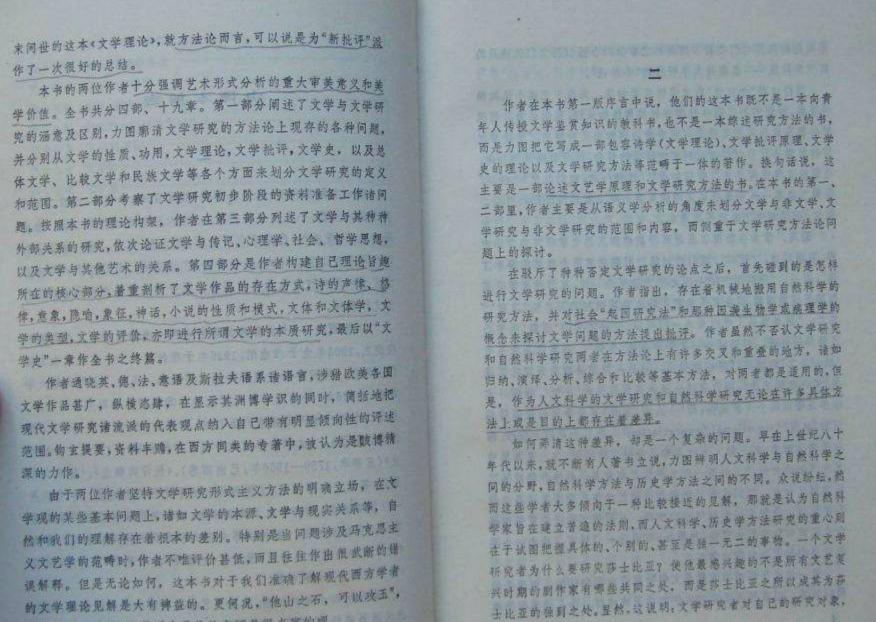 末问世的这本《文学理论》,就方法论而言,可以说是为“新批评”派
作了一次很好的总结。
本书的两位作者十分强调艺术形式分析的重大审美意义和美
学价值。全书共分四部、十九章。第一部分阐述了文学与文学研
究的涵意及区别,力图廓清文学研究的方法论上现存的各种问题,
并分别从文学的性质、功用,文学理论,文学批评,文学史,以及总
体文学、比较文学和民族文学等各个方面来划分文学研究的定义
和范围。第二部分考察了文学研究初步阶段的资料准备工作诸问
题。按照本书的理论构架,作者在第三部分列述了文学与其种种
外部关系的研究,依次论证文学与传记、心理学、社会、哲学思想,
以及文学与其他艺术的关系。第四部分是作者构建自己理论旨趣
所在的核心部分,着重剖析了文学作品的存在方式,诗的声律、格
律,意象,隐喻,象征,神话,小说的性质和模式,文体和文体学,文
学的类型,文学的评价,亦即进行所谓文学的本质研究,最后以“文
学史”一章作全书之终篇。
作者通晓英、德、法、意语及斯拉夫语系诸语言,涉猎欧美各国
文学作品甚广,纵横恣肆,在显示其渊博学识的同时,简括地把
现代文学研究诸流派的代表观点纳入自己带有明显倾向性的评述
范围。钩玄提要,资料丰赡,在西方同类的专著中,被认为是赅博精
深的力作。
由于两位作者坚持文学研究形式主义方法的明确立场,在文
学观的某些基本问题上,诸如文学的本源、文学与现实关系等,自
然和我们的理解存在着根本的差别。特别是当问题涉及马克思主
义文艺学的范畴时,作者不唯评价甚低,而且往往作出很武断的错
误解释。但是无论如何,这本书对于我们准确了解现代西方学者
的文学理论见解是大有裨益的。更何况,“他山之石,可以攻玉”,
二
作者在本书第一版序言中说,他们的这本书既不是一本向青
年人传授文学鉴赏知识的教科书,也不是一本综述研究方法的书,
而是力图把它写成一部包容诗学(文学理论)、文学批评原理、文学
史的理论以及文学研究方法等范畴于一体的著作。换句话说,这
主要是一部论述文艺学原理和文学研究方法的书。在本书的第一、
二部里,作者主要是从语义学分析的角度来划分文学与非文学、文
学研究与非文学研究的范围和内容,而侧重于文学研究方法论问
题上的探讨。
在驳斥了种种否定文学研究的论点之后,首先碰到的是怎样
进行文学研究的问题。作者指出,存在着机械地搬用自然科学的
研究方法,并对社会“起因研究法”和那种因袭生物学或病理学的
概念来探讨文学问题的方法提出批评。作者虽然不否认文学研究
和自然科学研究两者在方法论上有许多交叉和重叠的地方,诸如
归纳、演绎、分析、综合和比较等基本方法,对两者都是适用的,但
是,作为人文科学的文学研究和自然科学研究无论在许多具体方
法上或是目的上都存在着差异。
如何弄清这种差异,却是一个复杂的问题。早在上世纪八十
年代以来,就不断有人著书立说,力图辨明人文科学与自然科学之
间的分野,自然科学方法与历史学方法之间的不同。众说纷纭,然
而这些学者大多倾向于一种比较接近的见解,那就是认为自然科
学家旨在建立普遍的法则,而人文科学、历史学方法研究的重心则
在于试图把握具体的、个别的、甚至是独一无二的事物。一个文学
研究者为什么要研究莎士比亚?使他最感兴趣的不是所有文艺复
兴时期的剧作家有哪些共同之处,而是莎士比亚之所以成其为莎
士比亚的独到之处。显然,这说明,文学研究者对自己的研究对象,